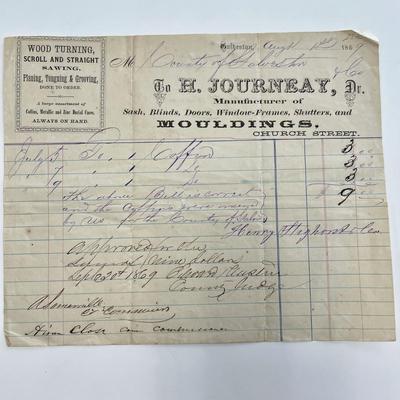 WOOD TURNING,
SCROLL AND STRAIGHT
SAWING,
Planing, Tongueing & Grooving,
DONE TO ORDER.
A large assortment of
Coffins, Metallic and Zinc Burial Cases,
ALWAYS ON HAND.
Galveston, Augt 1869
M County of Galveston
To H. JOURNEAY, Dr.
Manufacturer of
Sash, Blinds, Doors, Window-Frames, Shutters, and
MOULDINGS.
CHURCH STREET.
July 5 To 1 Coffin 3
7 " 1 3
9 " 1 3
The above Bill is correct 9
and the Coffins were
by us for the County of
Henry
Approved for the
sum of nine dollars
Sept 20th 1869
County Judge
A Somerville
Hiram Close Com